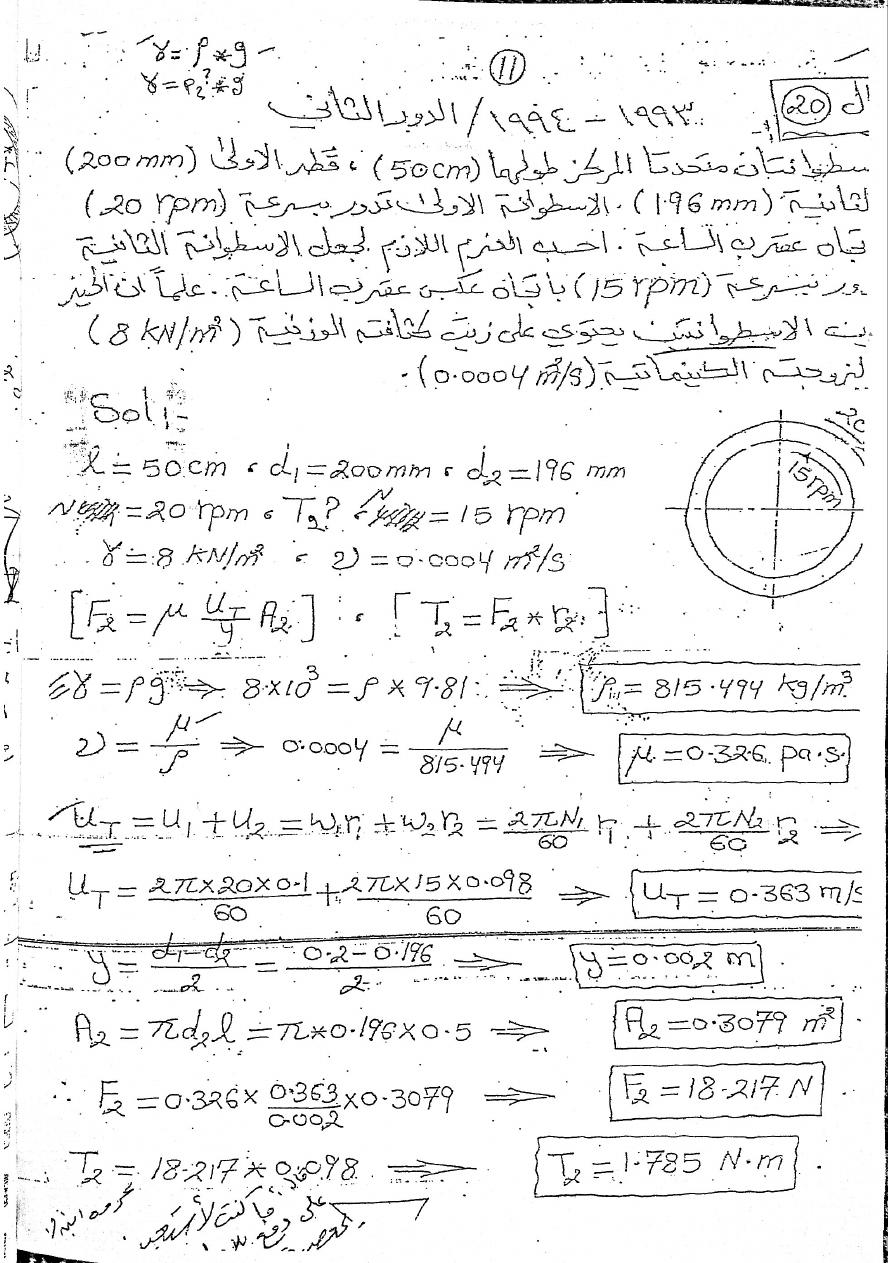 γ = ρ * g
γ = ρ ? * g
11
ل 20
١٩٩٣ – ١٩٩٤ / الدور الثاني
سطوانتان متحدتا المركز طولهما (50 cm) ، قطر الاولى (200 mm)
لثانية (196 mm) . الاسطوانة الاولى تدور بسرعة (20 rpm)
تجاه عقرب الساعة . احسب العزم اللازم لجعل الاسطوانة الثانية
ور بسرعة (15 rpm) باتجاه عكس عقرب الساعة . علماً ان الحيز
ين الاسطوانتين يحتوي على زيت كثافته الوزنية (8 kN/m³)
لزوجته الكينماتية (0.0004 m²/s) .
Sol :-
ℓ = 50 cm ، d₁ = 200 mm ، d₂ = 196 mm
N = 20 rpm ، T₂ ? ، N = 15 rpm
15 rpm
γ = 8 kN/m³ ، ν = 0.0004 m²/s
[F₂ = μ U_T/y A₂] ، [T₂ = F₂ * r₂]
γ = ρg ⇒ 8×10³ = ρ × 9.81 ⇒ ρ = 815.494 kg/m³
ν = μ/ρ ⇒ 0.0004 = μ/815.494 ⇒ μ = 0.326 pa.s
U_T = U₁ + U₂ = ω₁r₁ + ω₂r₂ = 2πN₁/60 r₁ + 2πN₂/60 r₂ ⇒
U_T = 2π×20×0.1/60 + 2π×15×0.098/60 ⇒ U_T = 0.363 m/s
y = d₁-d₂/2 = 0.2-0.196/2 ⇒ y = 0.002 m
A₂ = πd₂ℓ = π*0.196×0.5 ⇒ A₂ = 0.3079 m²
∴ F₂ = 0.326 × 0.363/0.002 × 0.3079 ⇒ F₂ = 18.217 N
T₂ = 18.217 * 0.098 ⇒ T₂ = 1.785 N.m